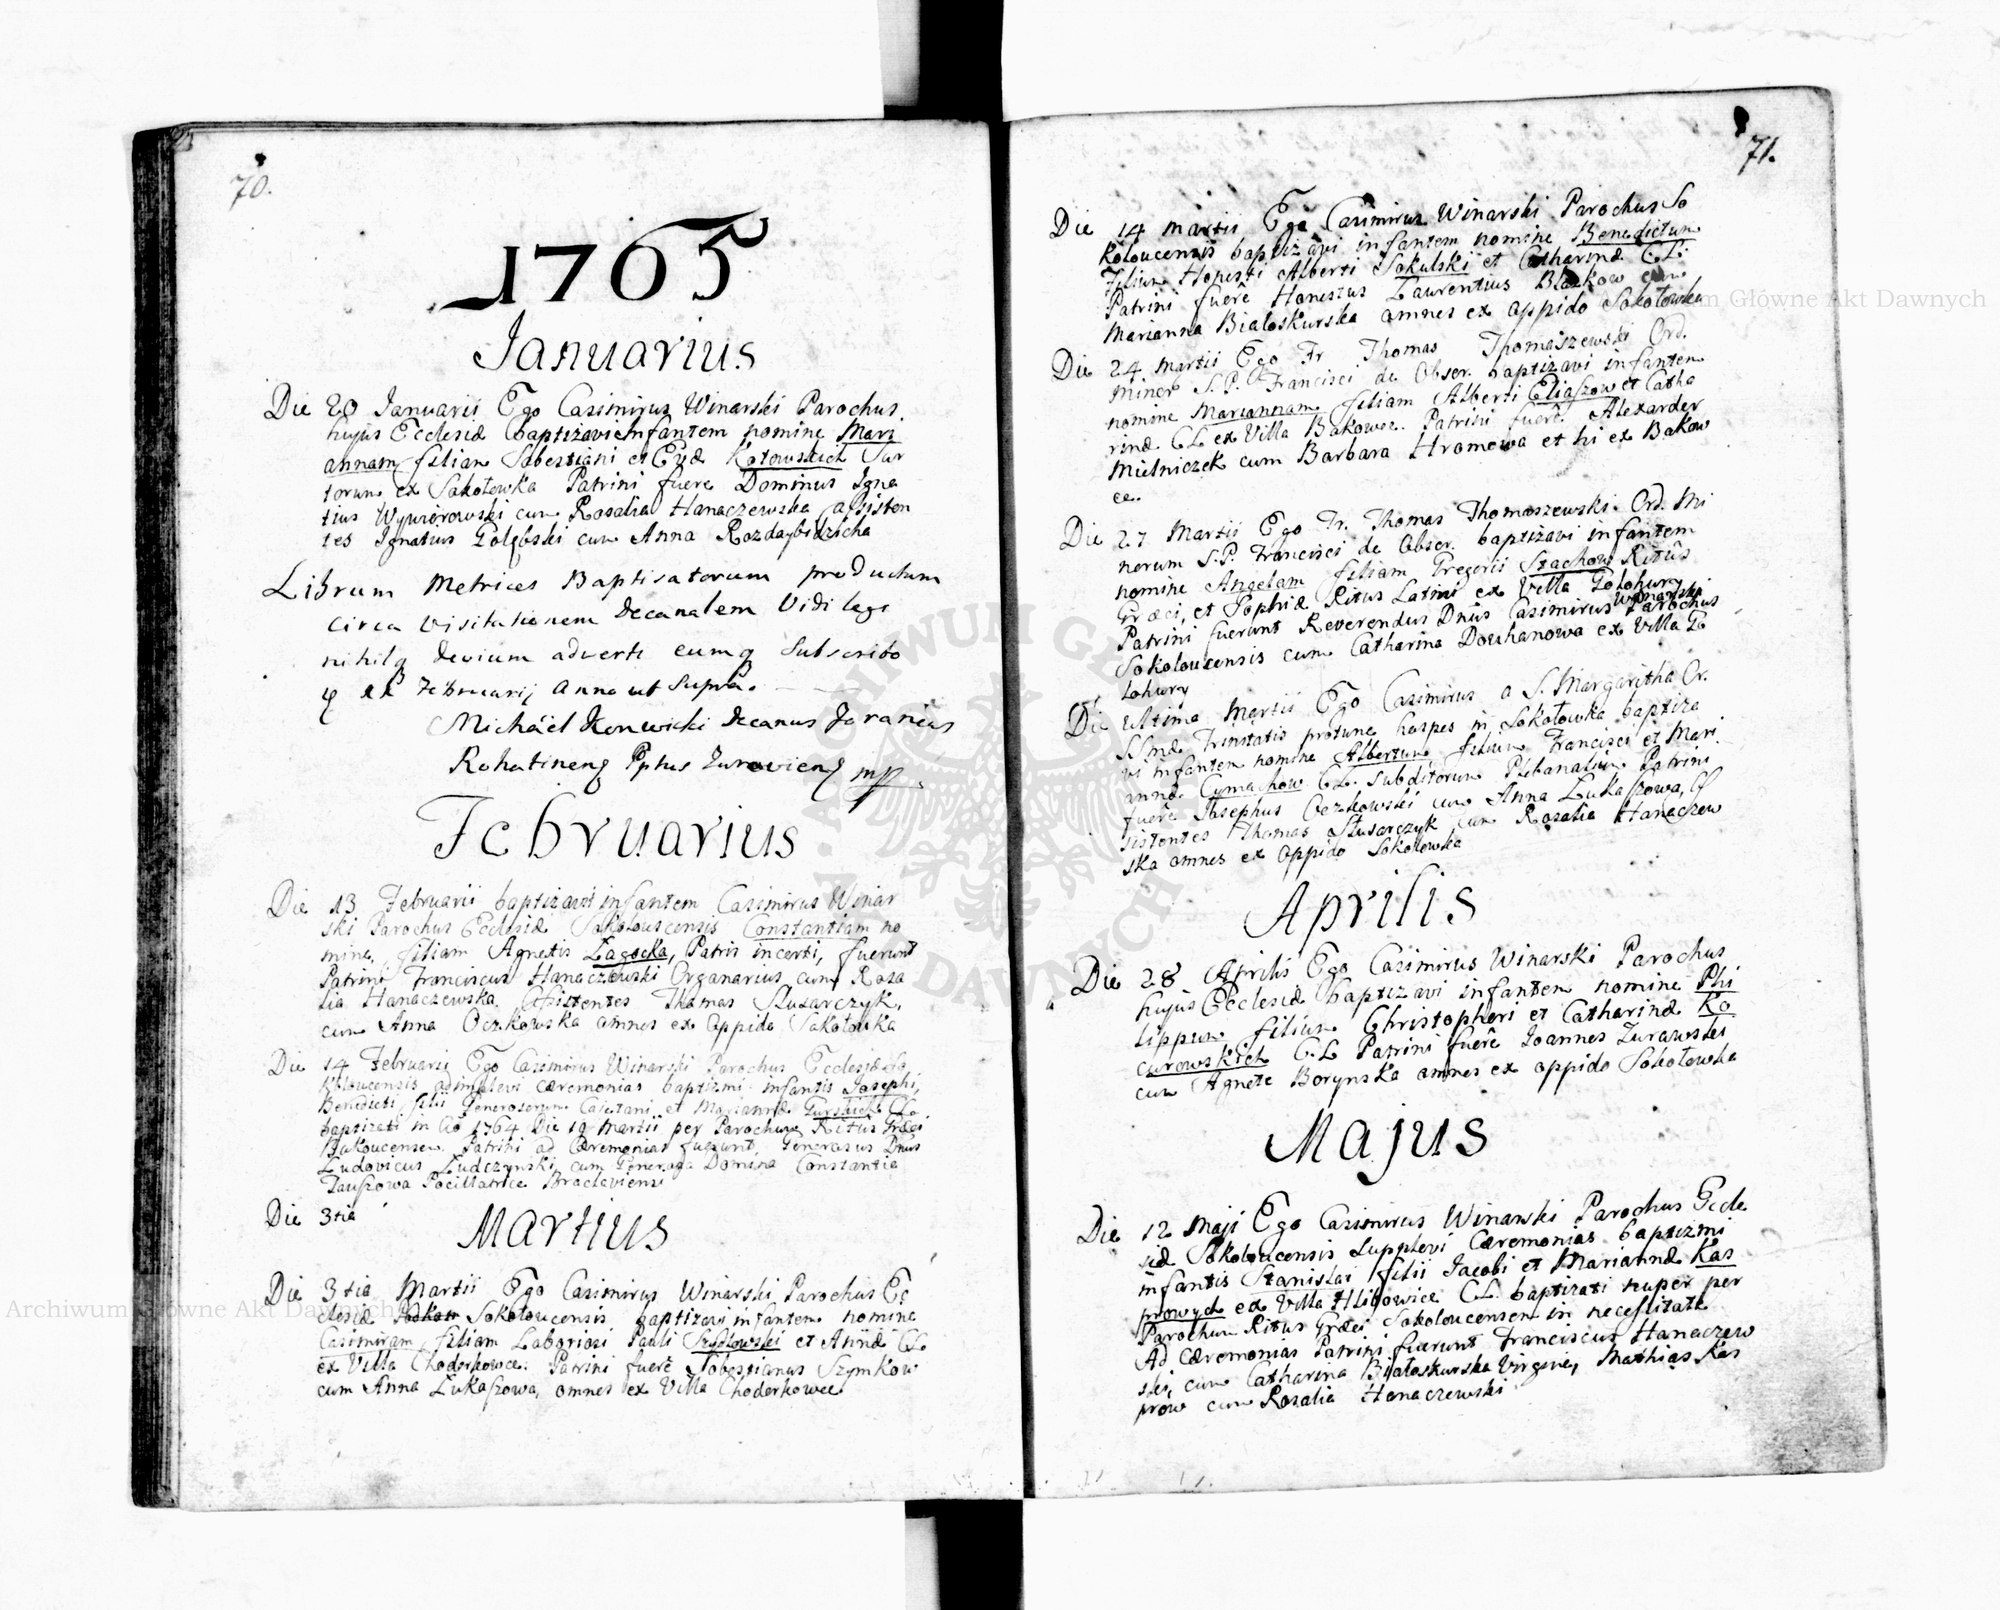 70.
1765
Januarius
Die 20 Januarii Ego Casimirus Winarski Parochus
hujus Ecclesiæ baptizavi Infantem nomine Mari
annam filiam Sebestiani et Evæ Kotowskich Sar
torum ex Sokołowka Patrini fuere Dominus Igna
tius Wywiorowski cum Rosalia Hanaczewska assisten
tes Ignatius Gołębski cum Anna Rozdaybidzicha
Librum Metrices Baptisatorum productum
circa Visitationem Decanalem Vidi legi
nihilq devium adverti eumq Subscribo
Februarij Anno ut Supra.
Michäel Konwicki Decanus Foraneus
Rohatinenq Pptus Zuravienq mp
Februarius
Die 13 Februarii baptizavi infantem Casimirus Winar
ski Parochus Ecclesiæ Sokołoucensis Constantiam no
mine, filiam Agnetis Zagocka, Patris incerti, fuerunt
Patrini Franciscus Hanaczewski Organarius cum Rosa
lia Hanaczewska. Assistentes Thomas Slusarczyk,
cum Anna Oczkowska omnes ex Oppido Sakołowka
Die 14 Februarij Ego Casimirus Winarski Parochus Ecclesiæ So
kołoucensis adimplevi cæremonias baptizmi infantis Josephi,
Benedicti filii Generosorum Caietani et Mariannæ Gurskich CL
baptizati in Ao 1764 Die 19 Martii per Parochum Ritus Græci
Patrini ad Cæremonias fuerunt, Generosus Dnus
Ludovicus Zudczynski cum Generosa Domina Constantia
Pocillatrice Bracłaviensi
Die 3tia
Martius
Die 3tia Martii Ego Casimirus Winarski Parochus Ec
clesiæ Sokołoucensis baptizavi infantem nomine
Casimiram filiam Laboriosi Pauli Szydłowski et Annæ CL
ex Villa Chodorkowce. Patrini fuerê Sobestianus Szymkow
cum Anna Łukaszowa, omnes ex Villa Choderkowce
71.
Die 14 Martii Ego Casimirus Winarski Parochus So
kołoucensis baptizavi infantem nomine Benedictum
Filium Honesti Alberti Sokulski et Catharinæ CL:
Patrini fuerê Honestus Laurentius Blaskow cum
Marianna Białoskurska omnes ex oppido Sokołowka
Die 24 Martii Ego Fr Thomas Thomaszewski Ord.
Minor S.P. Francisci de Obser. baptizavi infantem
nomine Mariannam filiam Alberti Eliaszow et Catha
rinæ CL ex Villa Bakowce. Patrini fuerê Alexander
Mielniczek cum Barbara Hromowa et hi ex Bakow
ce.
Die 27 Martii Ego Fr. Thomas Thomaszewski Ord. Mi
norum S.P. Francisci de Obser. baptizavi infantem
nomine Angelam filiam Gregorii Stachow Ritûs
Græci, et Sophiæ Ritus Latini ex Villa Gołohury
Patrini fuerunt Reverendus Dnûs Casimirus Winarski Parochus
Sokołoucensis cum Catharina Douhanowa ex Villa Go
łohury
Die Ultima Martii Ego Casimirus a S. Margaritha Or.
SSmæ Trinitatis protunc hospes in Sokołowka baptiza
vi infantem nomine Albertum filium Francisci et Mari
annæ Cymachow CL. subditorum Plebanalium Patrini
fuerê Josephus Oczkowski cum Anna Łukaszowa, As
sistentes Thomas Slusarczyk cum Rosalia Hanaczew
ska omnes ex Oppido Sokołowka
Aprilis
Die 28 Aprilis Ego Casimirus Winarski Parochus
hujus Ecclesiæ baptizavi infantem nomine Phi
lippum filium Christophori et Catharinæ Ko
curowskich C.L Patrini fuerê Joannes Zurawski
cum Agnete Borynska omnes ex oppido Sokołowka
Majus
Die 12 Maji Ego Casimirus Winarski Parochus Eccle
siæ Sokołoucensis Supplevi Cæremonias baptizmi
infantis Stanislai filii Jacobi et Mariannæ Kas
prowych ex Villa Hlibowice CL. baptizati nuper per
Parochum Ritus Græci Sokołoucensem in necessitate
Ad Cæremonias Patrini fuerunt Franciscus Hanaczew
ski, cum Catharina Białoskurska Virgine, Mathias Kas
prow cum Rosalia Hanaczewski
Archiwum Główne Akt Dawnych
Archiwum Główne Akt Dawnych
ARCHIWUM GŁÓWNE AKT DAWNYCH